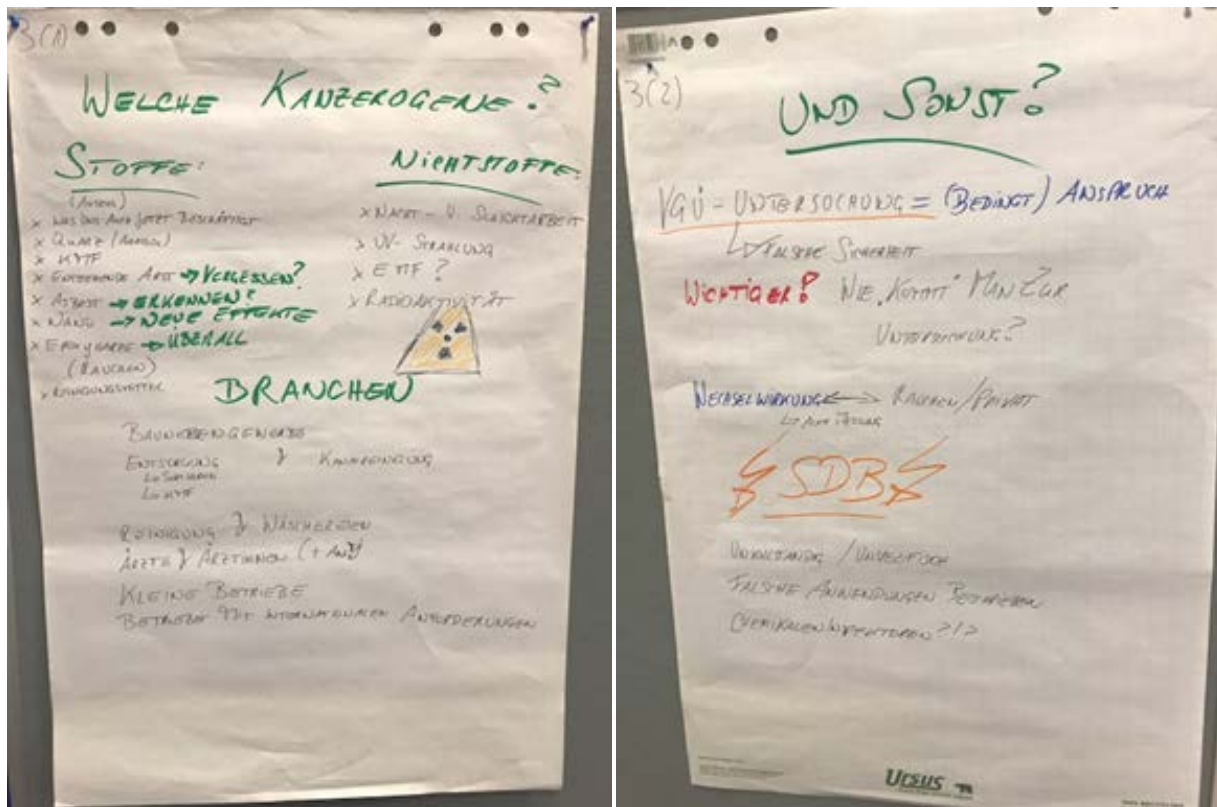 3(1)
WELCHE KANZEROGENE?
STOFFE:
x WAS DAS AUVA JETZT BESCHÄFTIGT
x QUARZ
x KMF
x ARBEIT → VERGESSEN?
x ASBEST → ERKENNEN?
x NANO → NEUE EFFEKTE
x EPOXYHARZE → ÜBERALL
(RAUCHEN)
x REINIGUNGSMITTEL
NICHTSTOFFE:
x NACHT- U. SCHICHTARBEIT
x UV-STRAHLUNG
x EMF?
x RADIOAKTIVITÄT
BRANCHEN
BAUNEBENGEWERBE
ENTSORGUNG & KANALREINIGUNG
↳ KMF
REINIGUNG & WÄSCHEREIEN
ÄRZTE & ÄRZTINNEN
KLEINE BETRIEBE
BETRIEBE MIT INTERNATIONALEN ANFORDERUNGEN
3(2)
UND SONST?
VGÜ - UNTERSUCHUNG = (BEDINGT) ANSPRUCH
↳ FALSCHE SICHERHEIT
WICHTIGER? WIE „KOMMT" MAN ZUR
UNTERSUCHUNG?
WECHSELWIRKUNG ↔ RAUCHEN/PRIVAT
SDB
UNVOLLSTÄNDIG /
FALSCHE ANWENDUNGEN BETRIEBEN
CHEMIKALIENINSPEKTOREN?!?
URSUS